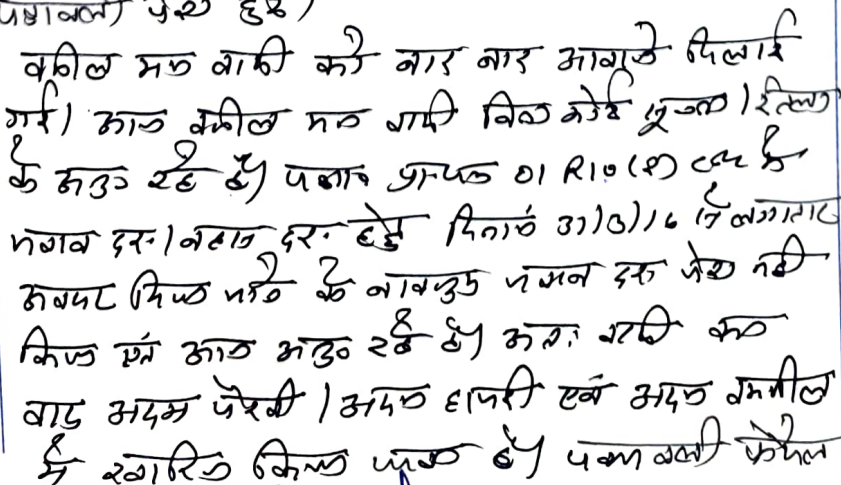 पत्रावली पेश हुई।
वकील मन वादी को बार बार आवाजे दिलाई
गई। आज वकील मन वादी बिना कोई सूचना / इत्तला
के अनु० रहे है। पत्रा० 01 R 10 (2) CPC के
जवाब हेतु दिनांक से लगातार
अवसर दिये जाने के बावजूद पेश नही
किया एवं आज अनु० रहे है। अतः वादी का
वाद अदम पैरवी / अदम हाजरी एवं अदम तामील
मे खारिज किया जाता है। पत्रावली फैसल